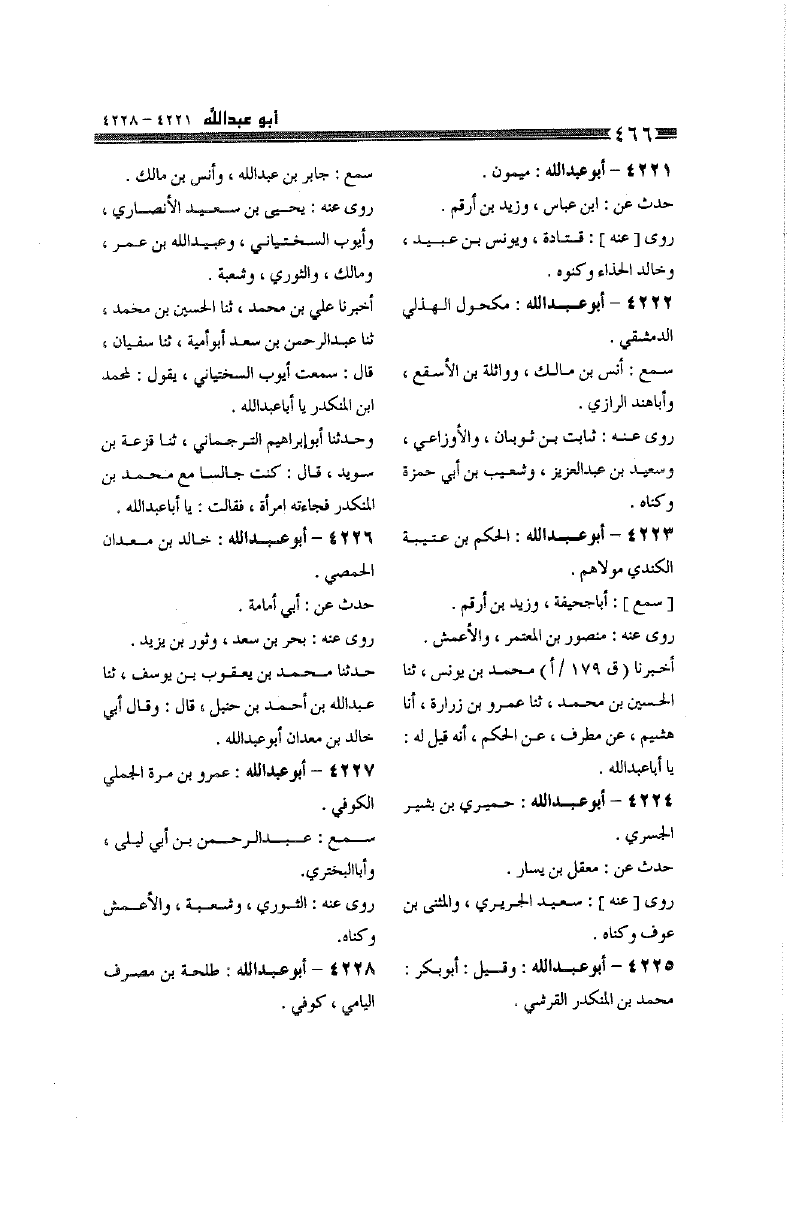 أبو عبدالله ٤٢٢١ – ٤٢٢٨
٤٦٦
٤٢٢١ – أبوعبدالله : ميمون .
حدث عن : ابن عباس ، وزيد بن أرقم .
روى [ عنه ] : قتادة ، ويونس بن عبيد ،
وخالد الحذاء وكنوه .
٤٢٢٢ – أبوعبدالله : مكحول الهذلي
الدمشقي .
سمع : أنس بن مالك ، وواثلة بن الأسقع ،
وأباهند الرازي .
روى عنه : ثابت بن ثوبان ، والأوزاعي ،
وسعيد بن عبدالعزيز ، وشعيب بن أبي حمزة
وكناه .
٤٢٢٣ – أبوعبدالله : الحكم بن عتيبة
الكندي مولاهم .
[ سمع ] : أباجحيفة ، وزيد بن أرقم .
روى عنه : منصور بن المعتمر ، والأعمش .
أخبرنا ( ق ١٧٩ / أ ) محمد بن يونس ، ثنا
الحسين بن محمد ، ثنا عمرو بن زرارة ، أنا
هشيم ، عن مطرف ، عن الحكم ، أنه قيل له :
يا أباعبدالله .
٤٢٢٤ – أبوعبدالله : حميري بن بشير
الجسري .
حدث عن : معقل بن يسار .
روى [ عنه ] : سعيد الجريري ، والمثنى بن
عوف وكناه .
٤٢٢٥ – أبوعبدالله : وقيل : أبوبكر :
محمد بن المنكدر القرشي .
سمع : جابر بن عبدالله ، وأنس بن مالك .
روى عنه : يحيى بن سعيد الأنصاري ،
وأيوب السختياني ، وعبيدالله بن عمر ،
ومالك ، والثوري ، وشعبة .
أخبرنا علي بن محمد ، ثنا الحسين بن محمد ،
ثنا عبدالرحمن بن سعد أبوأمية ، ثنا سفيان ،
قال : سمعت أيوب السختياني ، يقول : لمحمد
ابن المنكدر يا أباعبدالله .
وحدثنا أبوإبراهيم الترجماني ، ثنا قزعة بن
سويد ، قال : كنت جالسا مع محمد بن
المنكدر فجاءته امرأة ، فقالت : يا أباعبدالله .
٤٢٢٦ – أبوعبدالله : خالد بن معدان
الحمصي .
حدث عن : أبي أمامة .
روى عنه : بحر بن سعد ، وثور بن يزيد .
حدثنا محمد بن يعقوب بن يوسف ، ثنا
عبدالله بن أحمد بن حنبل ، قال : وقال أبي
خالد بن معدان أبوعبدالله .
٤٢٢٧ – أبوعبدالله : عمرو بن مرة الجملي
الكوفي .
سمع : عبدالرحمن بن أبي ليلى ،
وأباالبختري.
روى عنه : الثوري ، وشعبة ، والأعمش
وكناه.
٤٢٢٨ – أبوعبدالله : طلحة بن مصرف
اليامي ، كوفي .